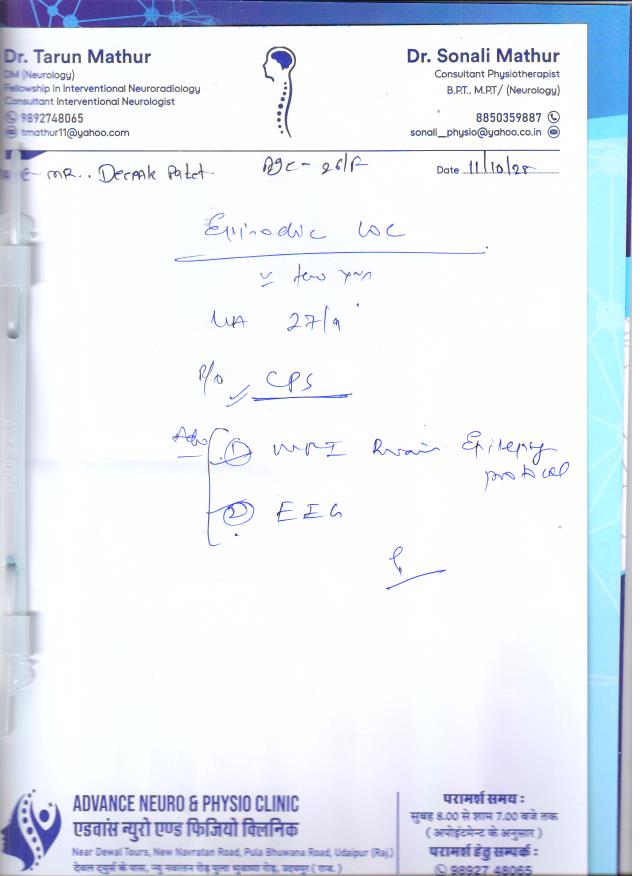 Dr. Tarun Mathur
DM (Neurology)
Fellowship in Interventional Neuroradiology
Consultant Interventional Neurologist
9892748065
tmathur11@yahoo.com
Dr. Sonali Mathur
Consultant Physiotherapist
B.P.T., M.P.T/ (Neurology)
8850359887
sonali_physio@yahoo.co.in
MR.. Deepak Patel
Date 11/10/25
Episodic LOC
27/9
CPS
Adv
① MRI Brain Epilepsy
protocol
② EEG
ADVANCE NEURO & PHYSIO CLINIC
एडवांस न्यूरो एण्ड फिजियो क्लिनिक
Near Dewal Tours, New Navratan Road, Pula Bhuwana Road, Udaipur (Raj.)
देवल टूर्स के पास, न्यू नवरतन रोड़ पुला भुवाणा रोड़, उदयपुर (राज.)
परामर्श समय :
सुबह 8.00 से शाम 7.00 बजे तक
( अपोइंटमेन्ट के अनुसार )
परामर्श हेतु सम्पर्क :
98927 48065